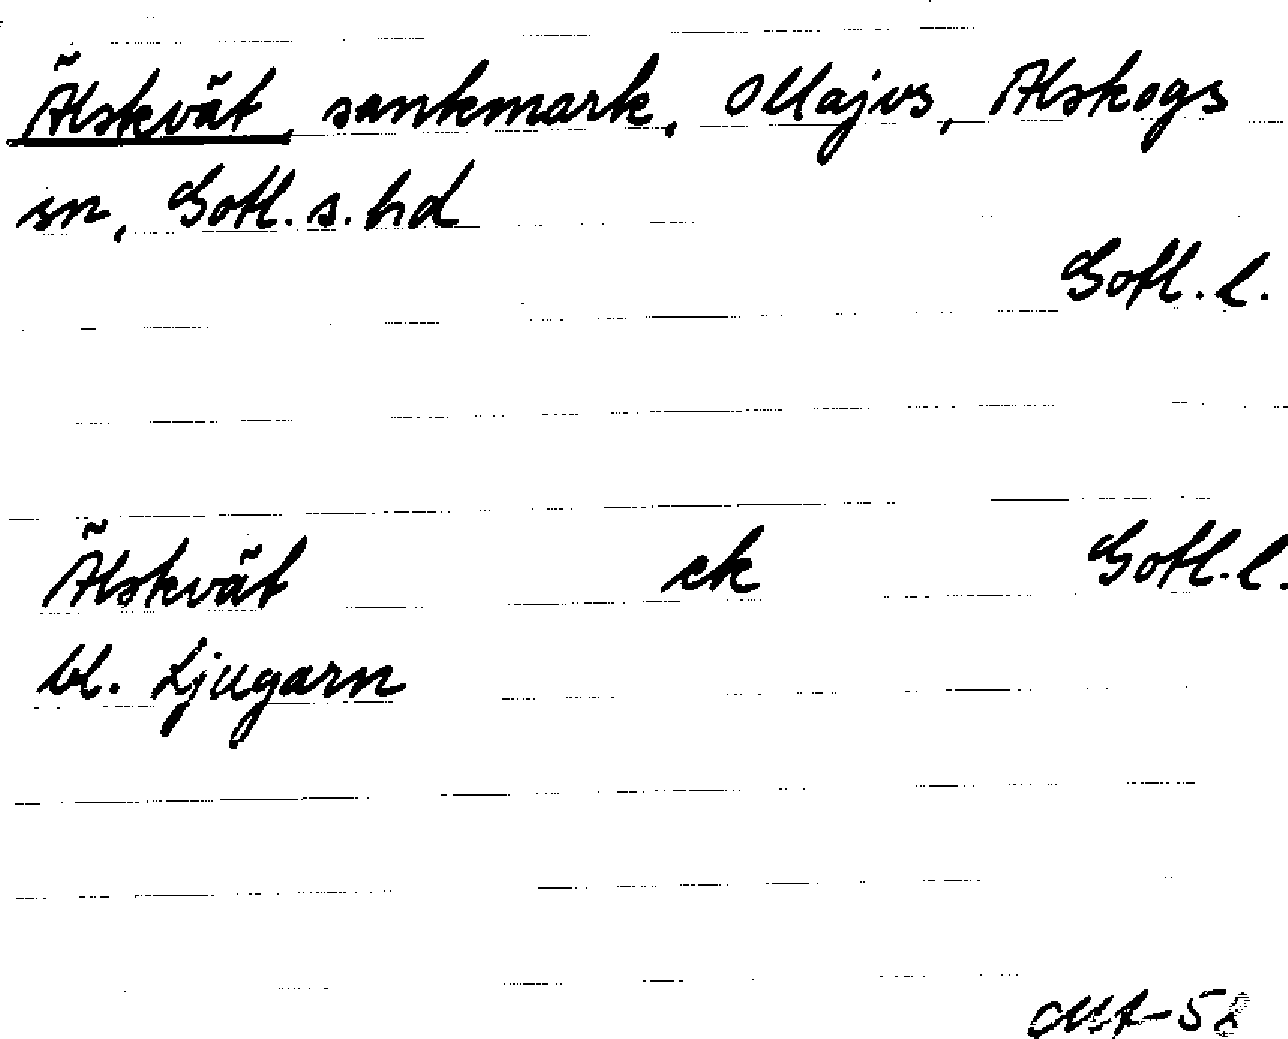 Älskvät, sankmark, Ollajvs, Alskogs
sn, Gotl. s. hd
Gotl. l.
Älskvät ek Gotl. l.
bl. Ljugarn